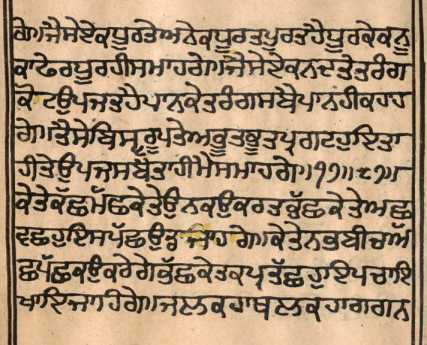 ਗੇ॥ਜੈਸੇਏਕਧੂਰਤੇਅਨੇਕਧੂਰਤਪੂਰਤਹੈਧੂਰਕੇਕਨੂ
ਕਾਫੇਰਧੂਰਹੀਸਮਾਹਗੇ॥ਜੈਸੇਏਕਨਦਤੇਤਰੰਗ
ਕੋਟਉਪਜਤਹੈਪਾਨਕੇਤਰੰਗਸਬੈਪਾਨਹੀਕਹਹ
ਗੇ॥ਤੈਸੇਬਿਸ੍ਵਰੂਪਤੇਅਭੂਤਭੂਤਪ੍ਰਗਟਹੁਇਤਾ
ਹੀਤੇਉਪਜਸਬੈਤਾਹੀਮੈਸਮਾਹਗੇ॥੧੭॥੮੭॥
ਕੇਤੇਕੱਛਮੱਛਕੇਤੇਉਨਕਉਕਰਤਭੱਛਕੇਤੇਅਛ
ਵਛਹੁਇਸਪੱਛਉਡਜਾਹਿਗੇ॥ਕੇਤੇਨਭਬੀਚਅੱ
ਛਪੱਛਕਉਕਰੇਗੇਭੱਛਕੇਤਕਪ੍ਰਤੱਛਹੁਇਪਚਾਇ
ਖਾਇਜਾਹਿਗੇ॥ਜਲਕਹਾਥਲਕਹਾਗਗਨ